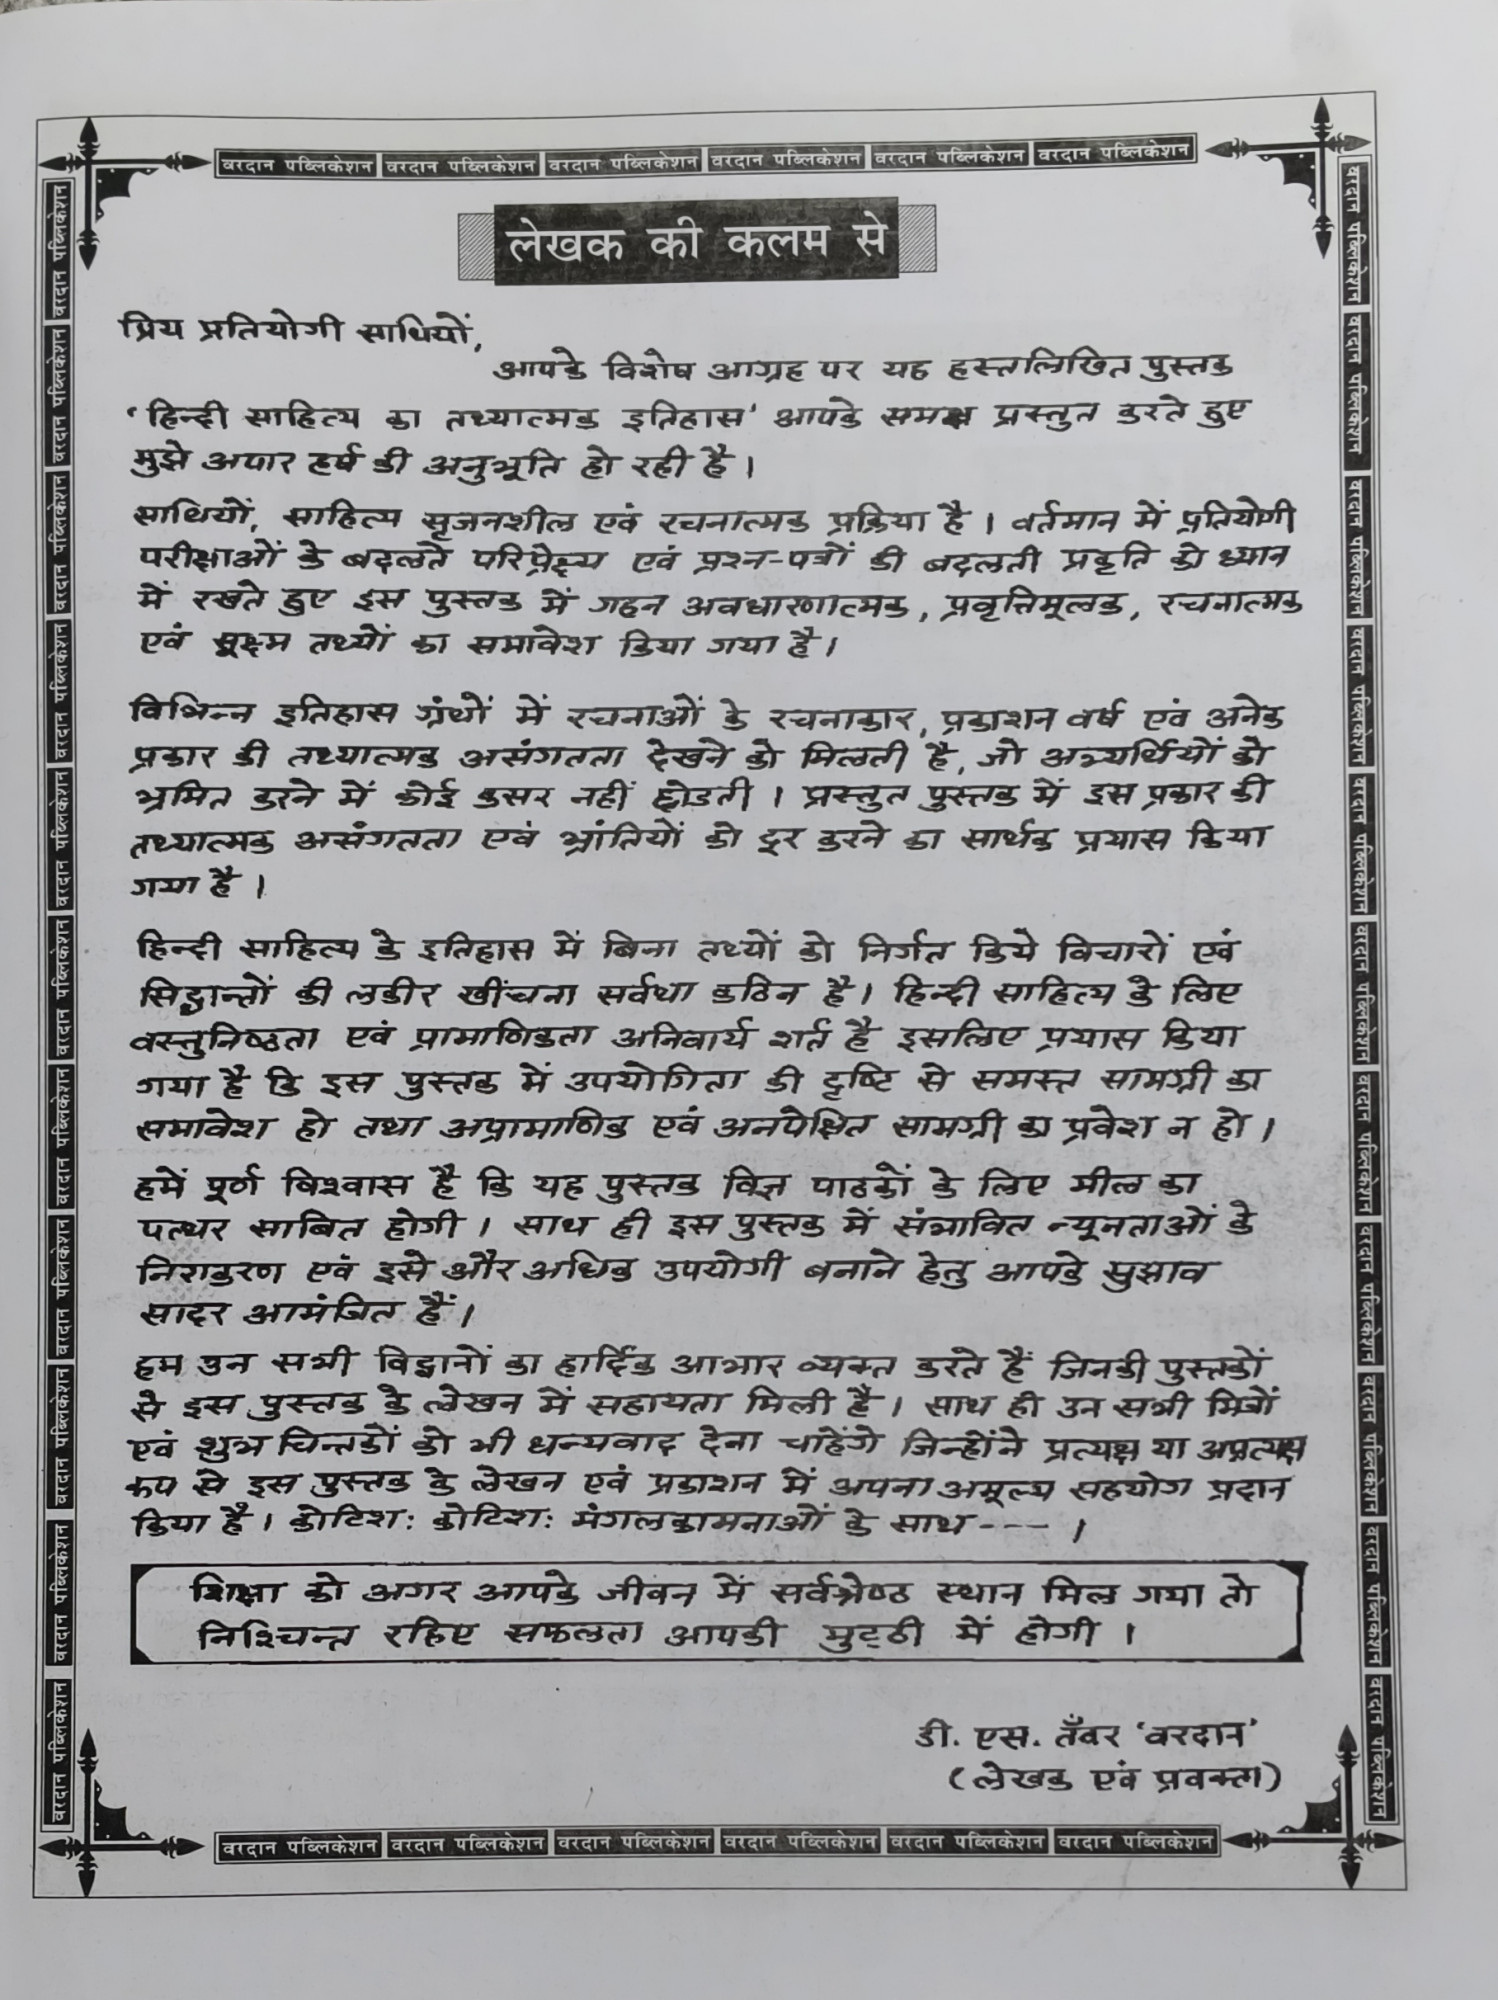 वरदान पब्लिकेशन वरदान पब्लिकेशन वरदान पब्लिकेशन वरदान पब्लिकेशन वरदान पब्लिकेशन वरदान पब्लिकेशन
लेखक की कलम से
प्रिय प्रतियोगी साथियों,
आपके विशेष आग्रह पर यह हस्तलिखित पुस्तक
'हिन्दी साहित्य का तथ्यात्मक इतिहास' आपके समक्ष प्रस्तुत करते हुए
मुझे अपार हर्ष की अनुभूति हो रही है।
साथियों, साहित्य सृजनशील एवं रचनात्मक प्रक्रिया है। वर्तमान में प्रतियोगी
परीक्षाओं के बदलते परिप्रेक्ष्य एवं प्रश्न-पत्रों की बदलती प्रकृति को ध्यान
में रखते हुए इस पुस्तक में गहन अवधारणात्मक, प्रवृत्तिमूलक, रचनात्मक
एवं सूक्ष्म तथ्यों का समावेश किया गया है।
विभिन्न इतिहास ग्रंथों में रचनाओं के रचनाकार, प्रकाशन वर्ष एवं अनेक
प्रकार की तथ्यात्मक असंगतता देखने को मिलती है, जो अभ्यर्थियों को
भ्रमित करने में कोई कसर नहीं छोडती। प्रस्तुत पुस्तक में इस प्रकार की
तथ्यात्मक असंगतता एवं भ्रांतियों को दूर करने का सार्थक प्रयास किया
गया है।
हिन्दी साहित्य के इतिहास में बिना तथ्यों को निर्गत किये विचारों एवं
सिद्धान्तों की लकीर खींचना सर्वथा कठिन है। हिन्दी साहित्य के लिए
वस्तुनिष्ठता एवं प्रामाणिकता अनिवार्य शर्त है इसलिए प्रयास किया
गया है कि इस पुस्तक में उपयोगिता की दृष्टि से समस्त सामग्री का
समावेश हो तथा अप्रामाणिक एवं अनपेक्षित सामग्री का प्रवेश न हो।
हमें पूर्ण विश्वास है कि यह पुस्तक विज्ञ पाठकों के लिए मील का
पत्थर साबित होगी। साथ ही इस पुस्तक में संभावित न्यूनताओं के
निराकरण एवं इसे और अधिक उपयोगी बनाने हेतु आपके सुझाव
सादर आमंत्रित हैं।
हम उन सभी विद्वानों का हार्दिक आभार व्यक्त करते हैं जिनकी पुस्तकों
से इस पुस्तक के लेखन में सहायता मिली है। साथ ही उन सभी मित्रों
एवं शुभ चिन्तकों को भी धन्यवाद देना चाहेंगे जिन्होंने प्रत्यक्ष या अप्रत्यक्ष
रूप से इस पुस्तक के लेखन एवं प्रकाशन में अपना अमूल्य सहयोग प्रदान
किया है। कोटिशः कोटिशः मंगलकामनाओं के साथ ---- ।
शिक्षा को अगर आपके जीवन में सर्वश्रेष्ठ स्थान मिल गया तो
निश्चिन्त रहिए सफलता आपकी मुट्ठी में होगी।
डी. एस. तँवर 'वरदान'
(लेखक एवं प्रवक्ता)
वरदान पब्लिकेशन वरदान पब्लिकेशन वरदान पब्लिकेशन वरदान पब्लिकेशन वरदान पब्लिकेशन वरदान पब्लिकेशन
वरदान पब्लिकेशन वरदान पब्लिकेशन वरदान पब्लिकेशन वरदान पब्लिकेशन वरदान पब्लिकेशन वरदान पब्लिकेशन वरदान पब्लिकेशन वरदान पब्लिकेशन वरदान पब्लिकेशन वरदान पब्लिकेशन वरदान पब्लिकेशन
वरदान पब्लिकेशन वरदान पब्लिकेशन वरदान पब्लिकेशन वरदान पब्लिकेशन वरदान पब्लिकेशन वरदान पब्लिकेशन वरदान पब्लिकेशन वरदान पब्लिकेशन वरदान पब्लिकेशन वरदान पब्लिकेशन वरदान पब्लिकेशन